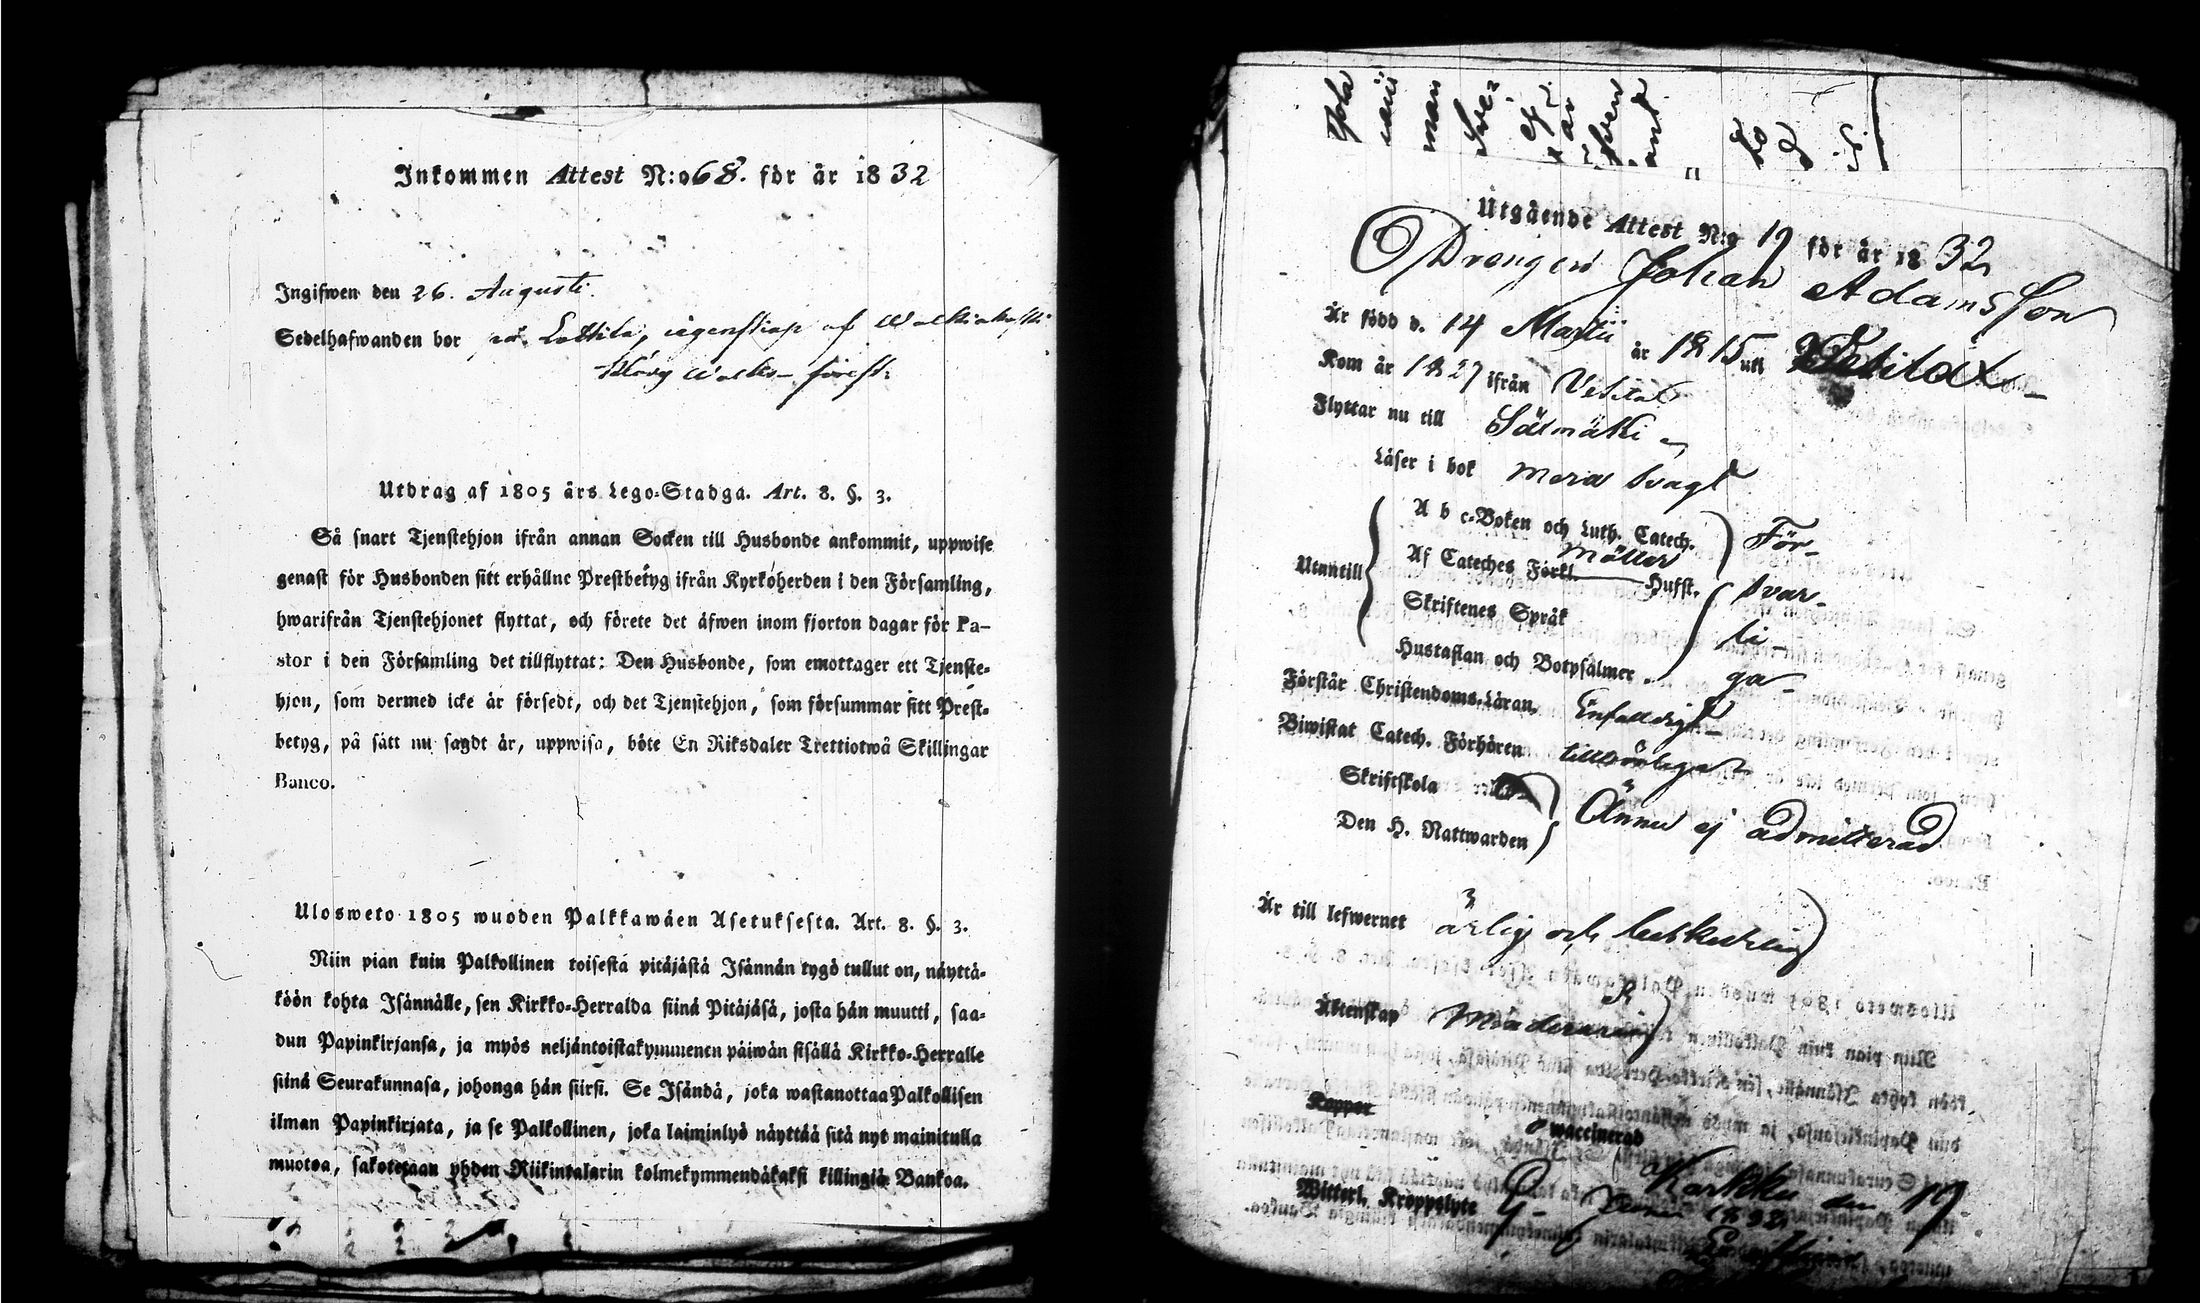 Inkommen Attest N:o 68. för år 1832
Ingifwen den 26. Augusti.
Sedelhafwanden bor på Lottila, egenskap af
Utdrag af 1805 års Lego-Stadga. Art. 8. §. 3.
Så snart Tjenstehjon ifrån annan Socken till Husbonde ankommit, uppwise
genast för Husbonden sitt erhållne Prestbetyg ifrån Kyrkoherden i den Församling,
hwarifrån Tjenstehjonet flyttat, och förete det äfwen inom fjorton dagar för Pa-
stor i den Församling det tillflyttat: Den Husbonde, som emottager ett Tjenste-
hjon, som dermed icke är försedt, och det Tjenstehjon, som försummar sitt Prest-
betyg, på sätt nu sagdt är, uppwisa, böte En Riksdaler Trettiotwå Skillingar
Banco.
Ulosweto 1805 wuoden Palkkawäen Asetuksesta. Art. 8. §. 3.
Niin pian kuin Palkollinen toisesta pitäjästä Isännän tygö tullut on, näyttä-
köön kohta Isännälle, sen Kirkko-Herralda siinä Pitäjäsä, josta hän muutti, saa-
dun Papinkirjansa, ja myös neljäntoistakymmenen päiwän sisällä Kirkko-Herralle
siinä Seurakunnasa, johonga hän siirsi. Se Isändä, joka wastanottaa Palkollisen
ilman Papinkirjata, ja se Palkollinen, joka laiminlyö näyttää sitä nyt mainitulla
muotoa, sakotetaan yhden Riikintalarin kolmekymmendäkaksi killingiä Bankoa.
Utgående Attest N:o 19 för år 1832
Drengen Johan Adamsson
Är född d. 14 Martii år 1815 uti Vesilax
Kom år 1827 ifrån Vesilax
Flyttar nu till Sääxmäki
Läser i bok mera svagt
A b c-Boken och Luth. Catech. För-
Af Cateches Förkl. Möller Husst. svar-
Utantill Skriftenes Språk li-
Hustaflan och Botpsalmer ga
Förstår Christendoms-Läran. Enfaldigt
Biwistat Catech. Förhören
Skriftskola
Den H. Nattwarden Ännu ej admitterad
Är till lefwernet ärlig och beskedlig
Äktenskap
Koppor
waccinerad
Witterl. Kroppslyte
Karkku den 19
1832